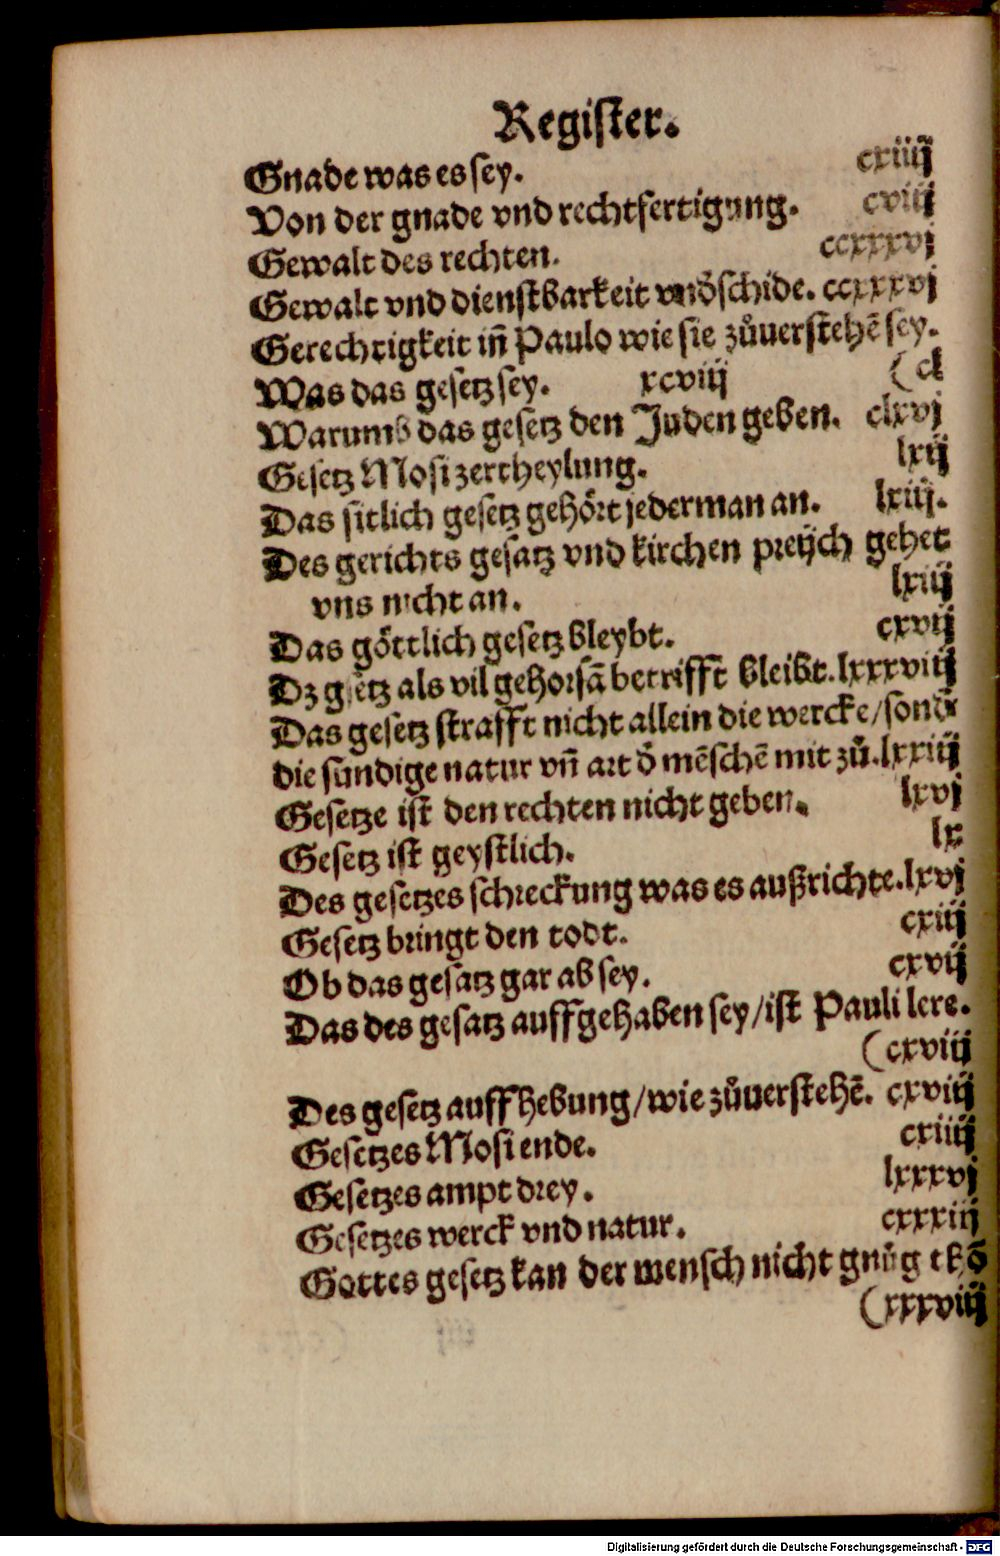 Register.
Gnade was es sey. cxiiij
Von der gnade vnd rechtfertigung. cviij
Gewalt des rechten. ccxxxvj
Gewalt vnd dienstbarkeit vndschide. ccxxxvj
Gerechtigkeit iñ Paulo wie sie zůuerstehẽ sey.
Was das gesetz sey. xcviij (cl
Warumb das gesetz den Juden geben. clxvj
Gesetz Mosi zertheylung. lxij
Das sitlich gesetz gehört jederman an. lxiij.
Des gerichts gesatz vnd kirchen preüch gehet
vns nicht an. lxiij
Das göttlich gesetz bleybt. cxvij
Dz gsetz als vil gehorsã betrifft bleibt. lxxxviij
Das gesetz strafft nicht allein die wercke/sond̃
die sundige natur vñ art d̃ mẽschẽ mit zů. lxxiij
Gesetze ist den rechten nicht geben. lxvj
Gesetz ist geystlich. lx
Des gesetzes schreckung was es außrichte. lxvj
Gesetz bringt den todt. cxiij
Ob das gesatz gar ab sey. cxvij
Das des gesatz auffgehaben sey/ist Pauli lere.
(cxviij
Des gesetz auffhebung/wie zůuerstehẽ. cxviij
Gesetzes Mosi ende. cxiiij
Gesetzes ampt drey. lxxxvj
Gesetzes werck vnd natur. cxxxiij
Gottes gesetz kan der mensch nicht gnůg thõ
(xxxviij
Digitalisierung gefördert durch die Deutsche Forschungsgemeinschaft - DFG